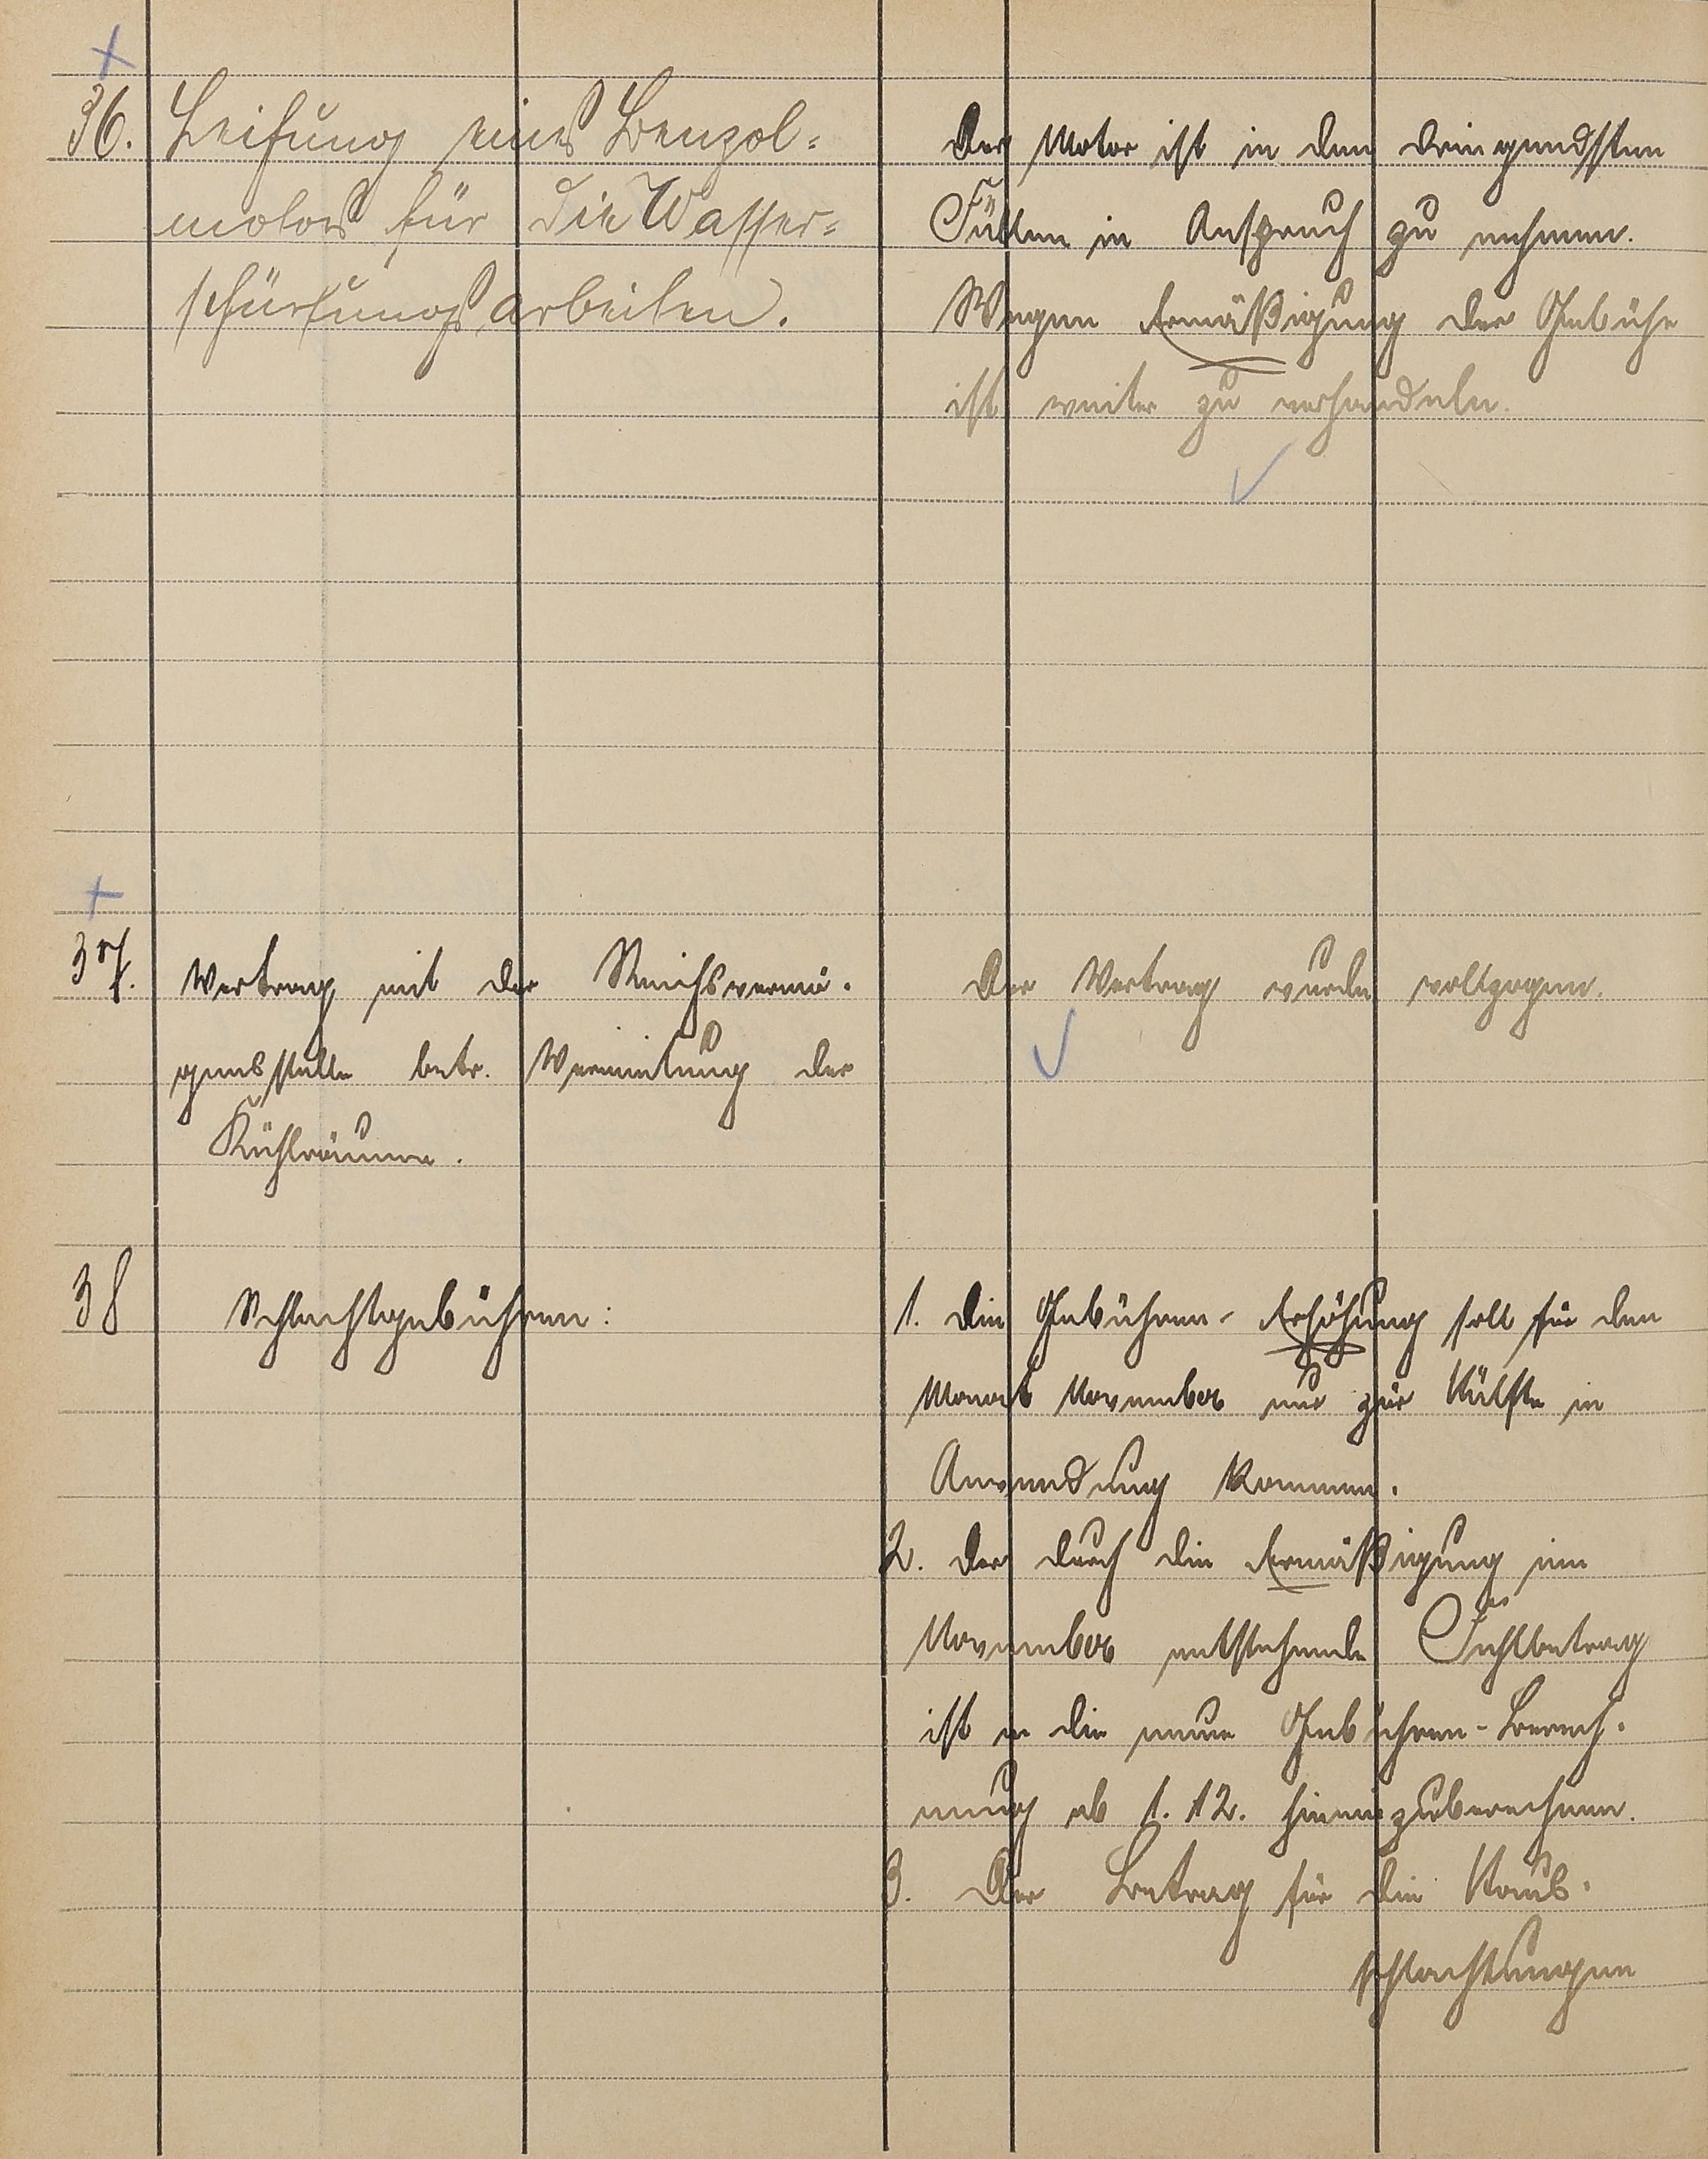 36. Leihung eines Benzol=
motors für die Wasser=
schürfungsarbeiten.
Der Motor ist in den dringendsten
Fällen in Anspruch zu nehmen.
Wegen Ermäßigung der Gebühr
ist weiter zu verhandeln.
37. Vertrag mit der Reichsvermö-
gensstelle betr. Vermietung der
Kühlräume.
Der Vertrag wurde vollzogen.
38 Schlachtgebühren:
1. Die Gebühren-Erhöhung soll für den
Monat November nur zur Hälfte in
Anwendung kommen.
2. Der durch die Ermäßigung im
November entstehende Fehlbetrag
ist in die neue Gebühren-Berech-
nung ab 1. 12. hineinzuberechnen.
3. Der Betrag für die Haus-
schlachtungen